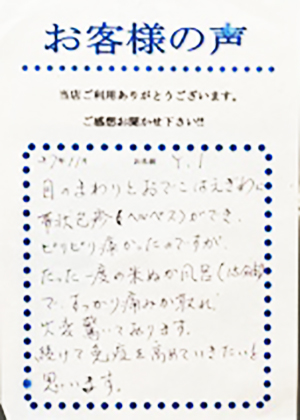 お客様の声
当店ご利用ありがとうございます。
ご感想お聞かせ下さい!!
27年11月 お名前 Y.I
目のまわりとおでこはえぎわに
帯状包疹(ヘルペス)ができ、
ピリピリ痛かったのですが、
たった一度の米ぬか風呂(
で、すっかり痛みが取れ
大変驚いております。
続けて免疫を高めていきたいと
思います。